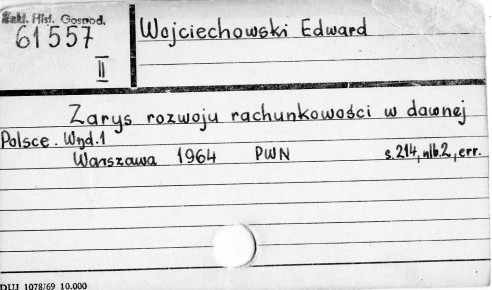 Zakł. Hist. Gospod.
61557
II
Wojciechowski Edward
Zarys rozwoju rachunkowości w dawnej
Polsce. Wyd.1
Warszawa 1964 PWN s.214, nlb.2, err.
DUJ 1078/69 10.000